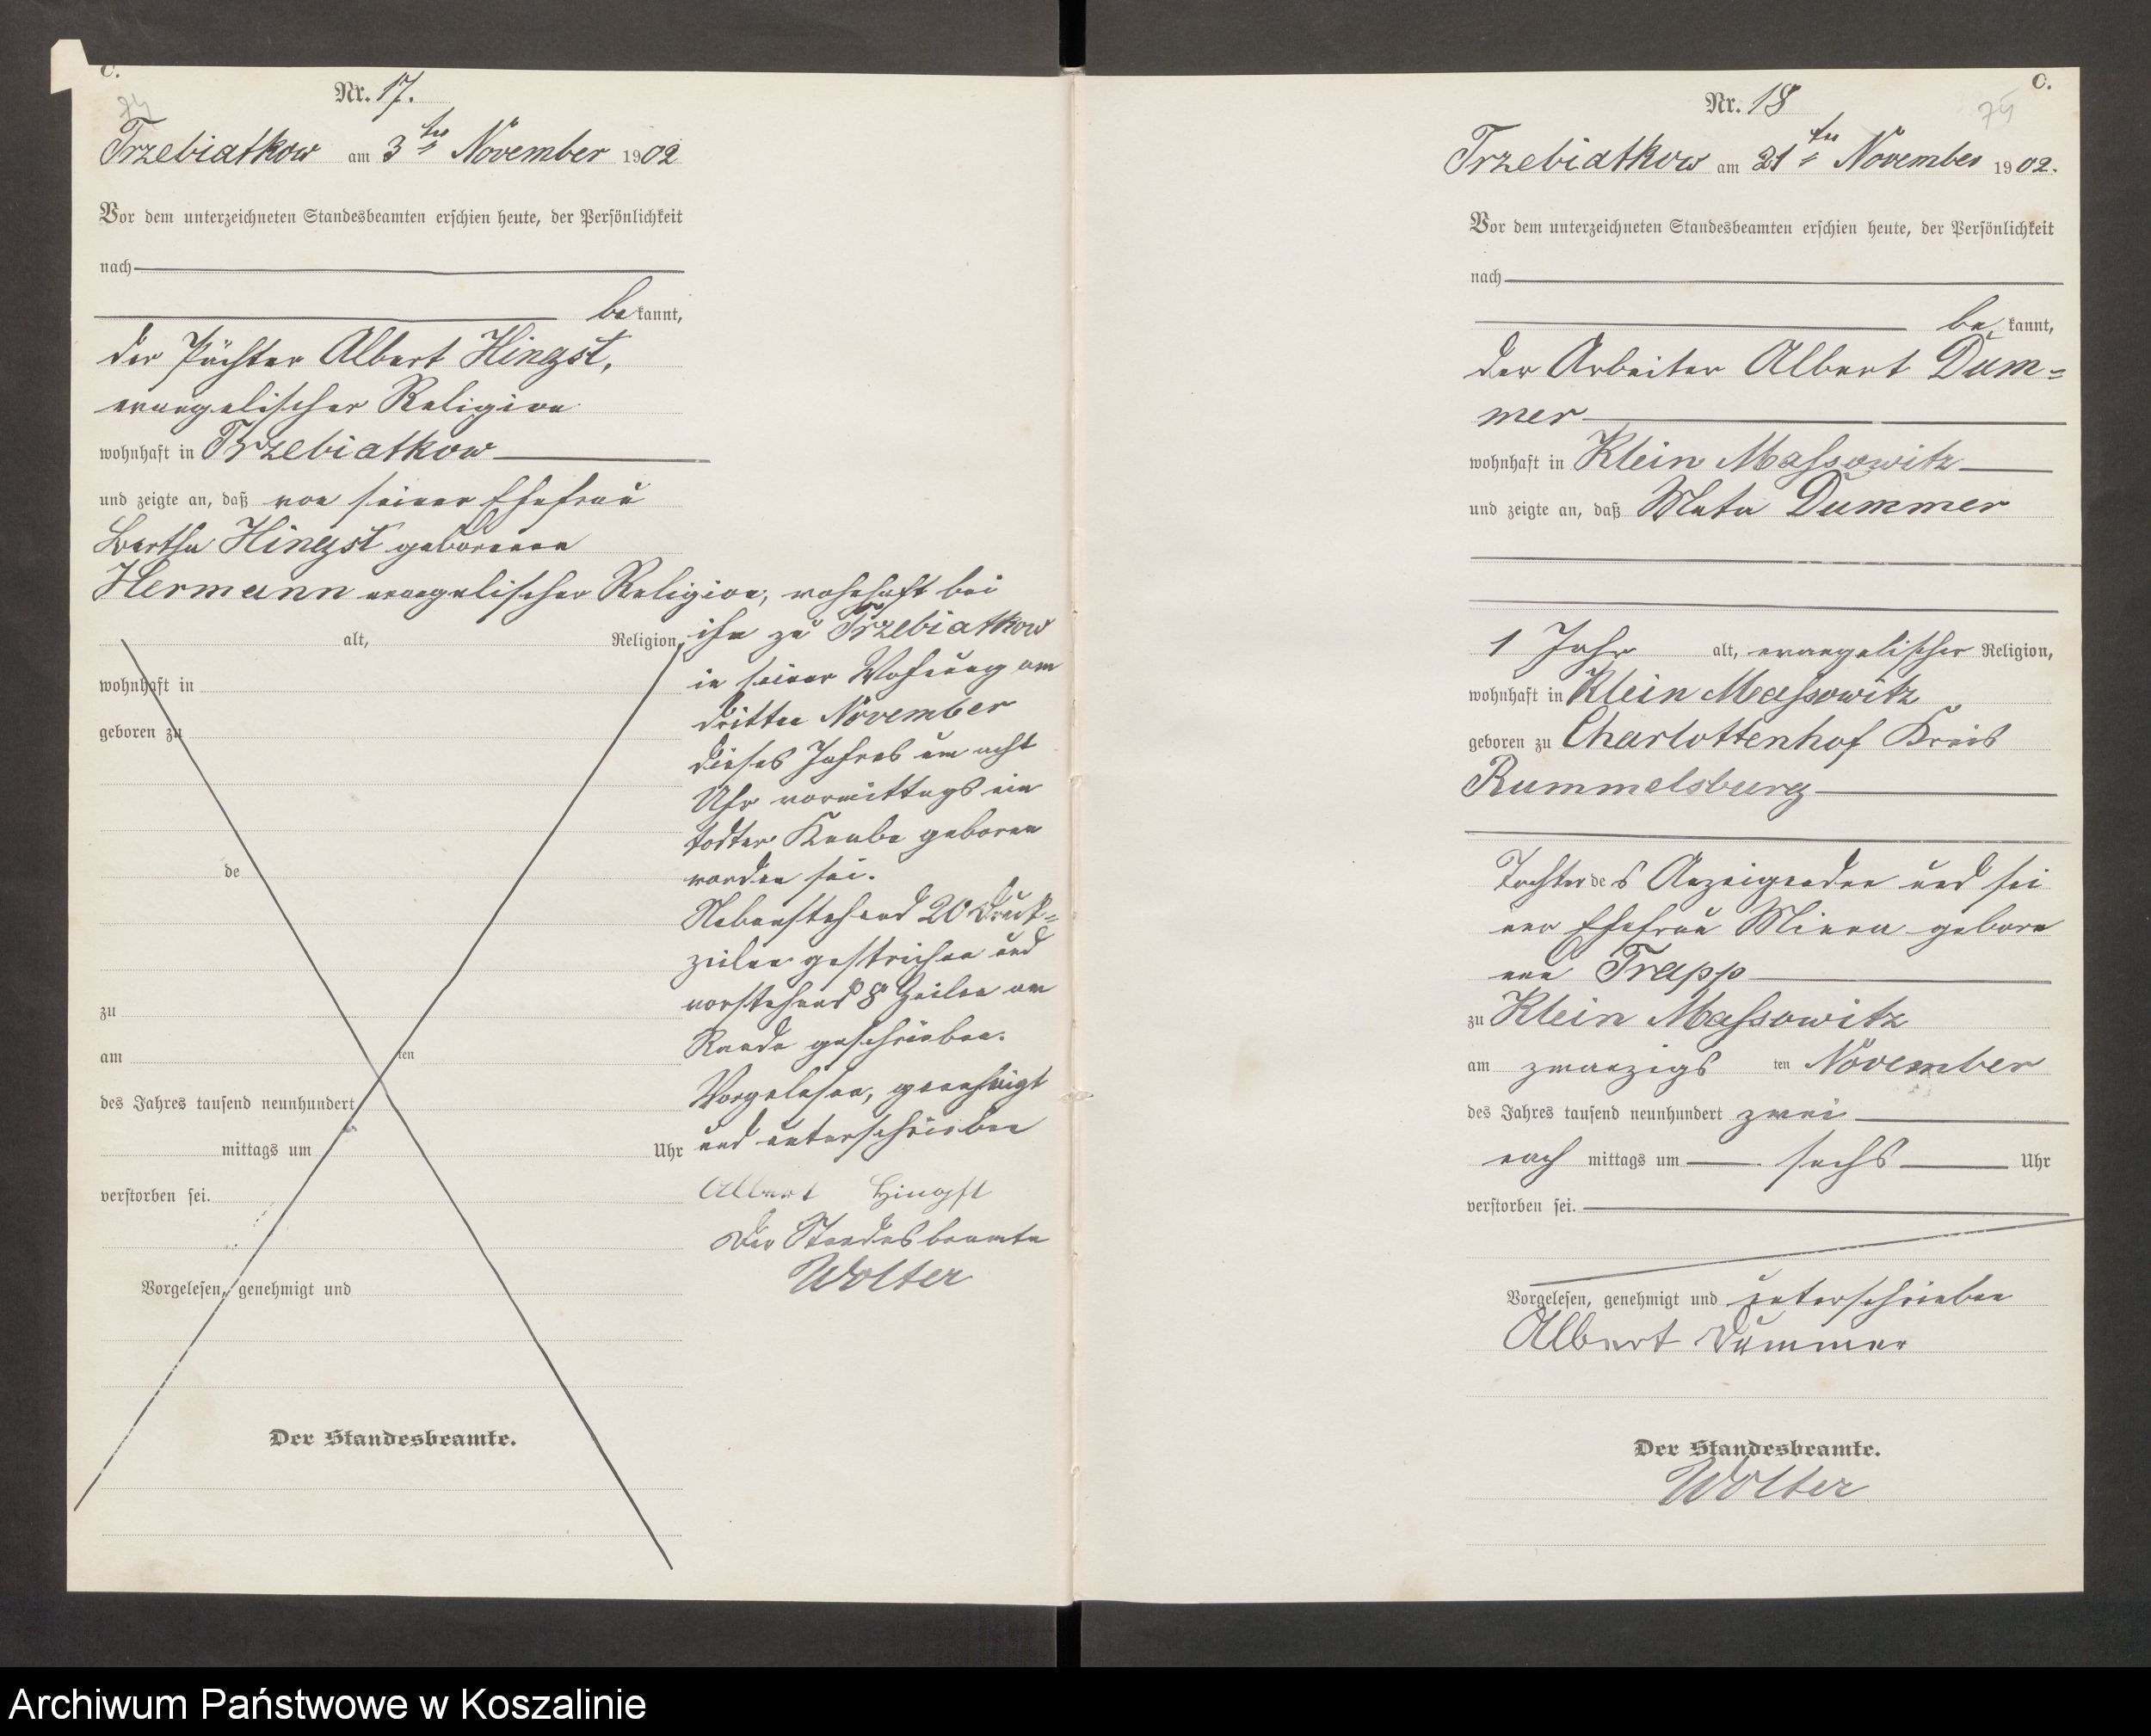 C.
Nr. 17.
74
Trzebiatkow am 3ten November 1902
Vor dem unterzeichneten Standesbeamten erschien heute, der Persönlichkeit
nach
be kannt,
der Pächter Albert Hingst,
evangelischer Religion
wohnhaft in Trzebiatkow
und zeigte an, daß von seiner Ehefrau
Bertha Hingst geborenen
Hermann evangelischer Religion, wohnhaft bei
alt, Religion,
wohnhaft in
geboren zu
de
zu
am ten
des Jahres tausend neunhundert
mittags um Uhr
verstorben sei.
Vorgelesen, genehmigt und
Der Standesbeamte.
ihm zu Trzebiatkow
in seiner Wohnung am
dritten November
dieses Jahres um acht
Uhr vormittags ein
todter Knabe geboren
worden sei.
Nebenstehend 20 Druck=
zeilen gestrichen und
vorstehend 8 Zeilen am
Rande geschrieben.
Vorgelesen, genehmigt
und unterschrieben
Albert Hingst
Der Standesbeamte
Wolter
C.
Nr. 18
75
Trzebiatkow am 21ten November 1902.
Vor dem unterzeichneten Standesbeamten erschien heute, der Persönlichkeit
nach
be kannt,
der Arbeiter Albert Dum=
mer
wohnhaft in Klein Massowitz
und zeigte an, daß Meta Dummer
1 Jahr alt, evangelischer Religion,
wohnhaft in Klein Massowitz
geboren zu Charlottenhof Kreis
Rummelsburg
Tochter des Anzeigenden und sei
ner Ehefrau Minna gebore
nen Trapp
zu Klein Massowitz
am zwanzigs ten November
des Jahres tausend neunhundert zwei
nach mittags um sechs Uhr
verstorben sei.
Vorgelesen, genehmigt und unterschrieben
Albert Dummer
Der Standesbeamte.
Wolter
Archiwum Państwowe w Koszalinie